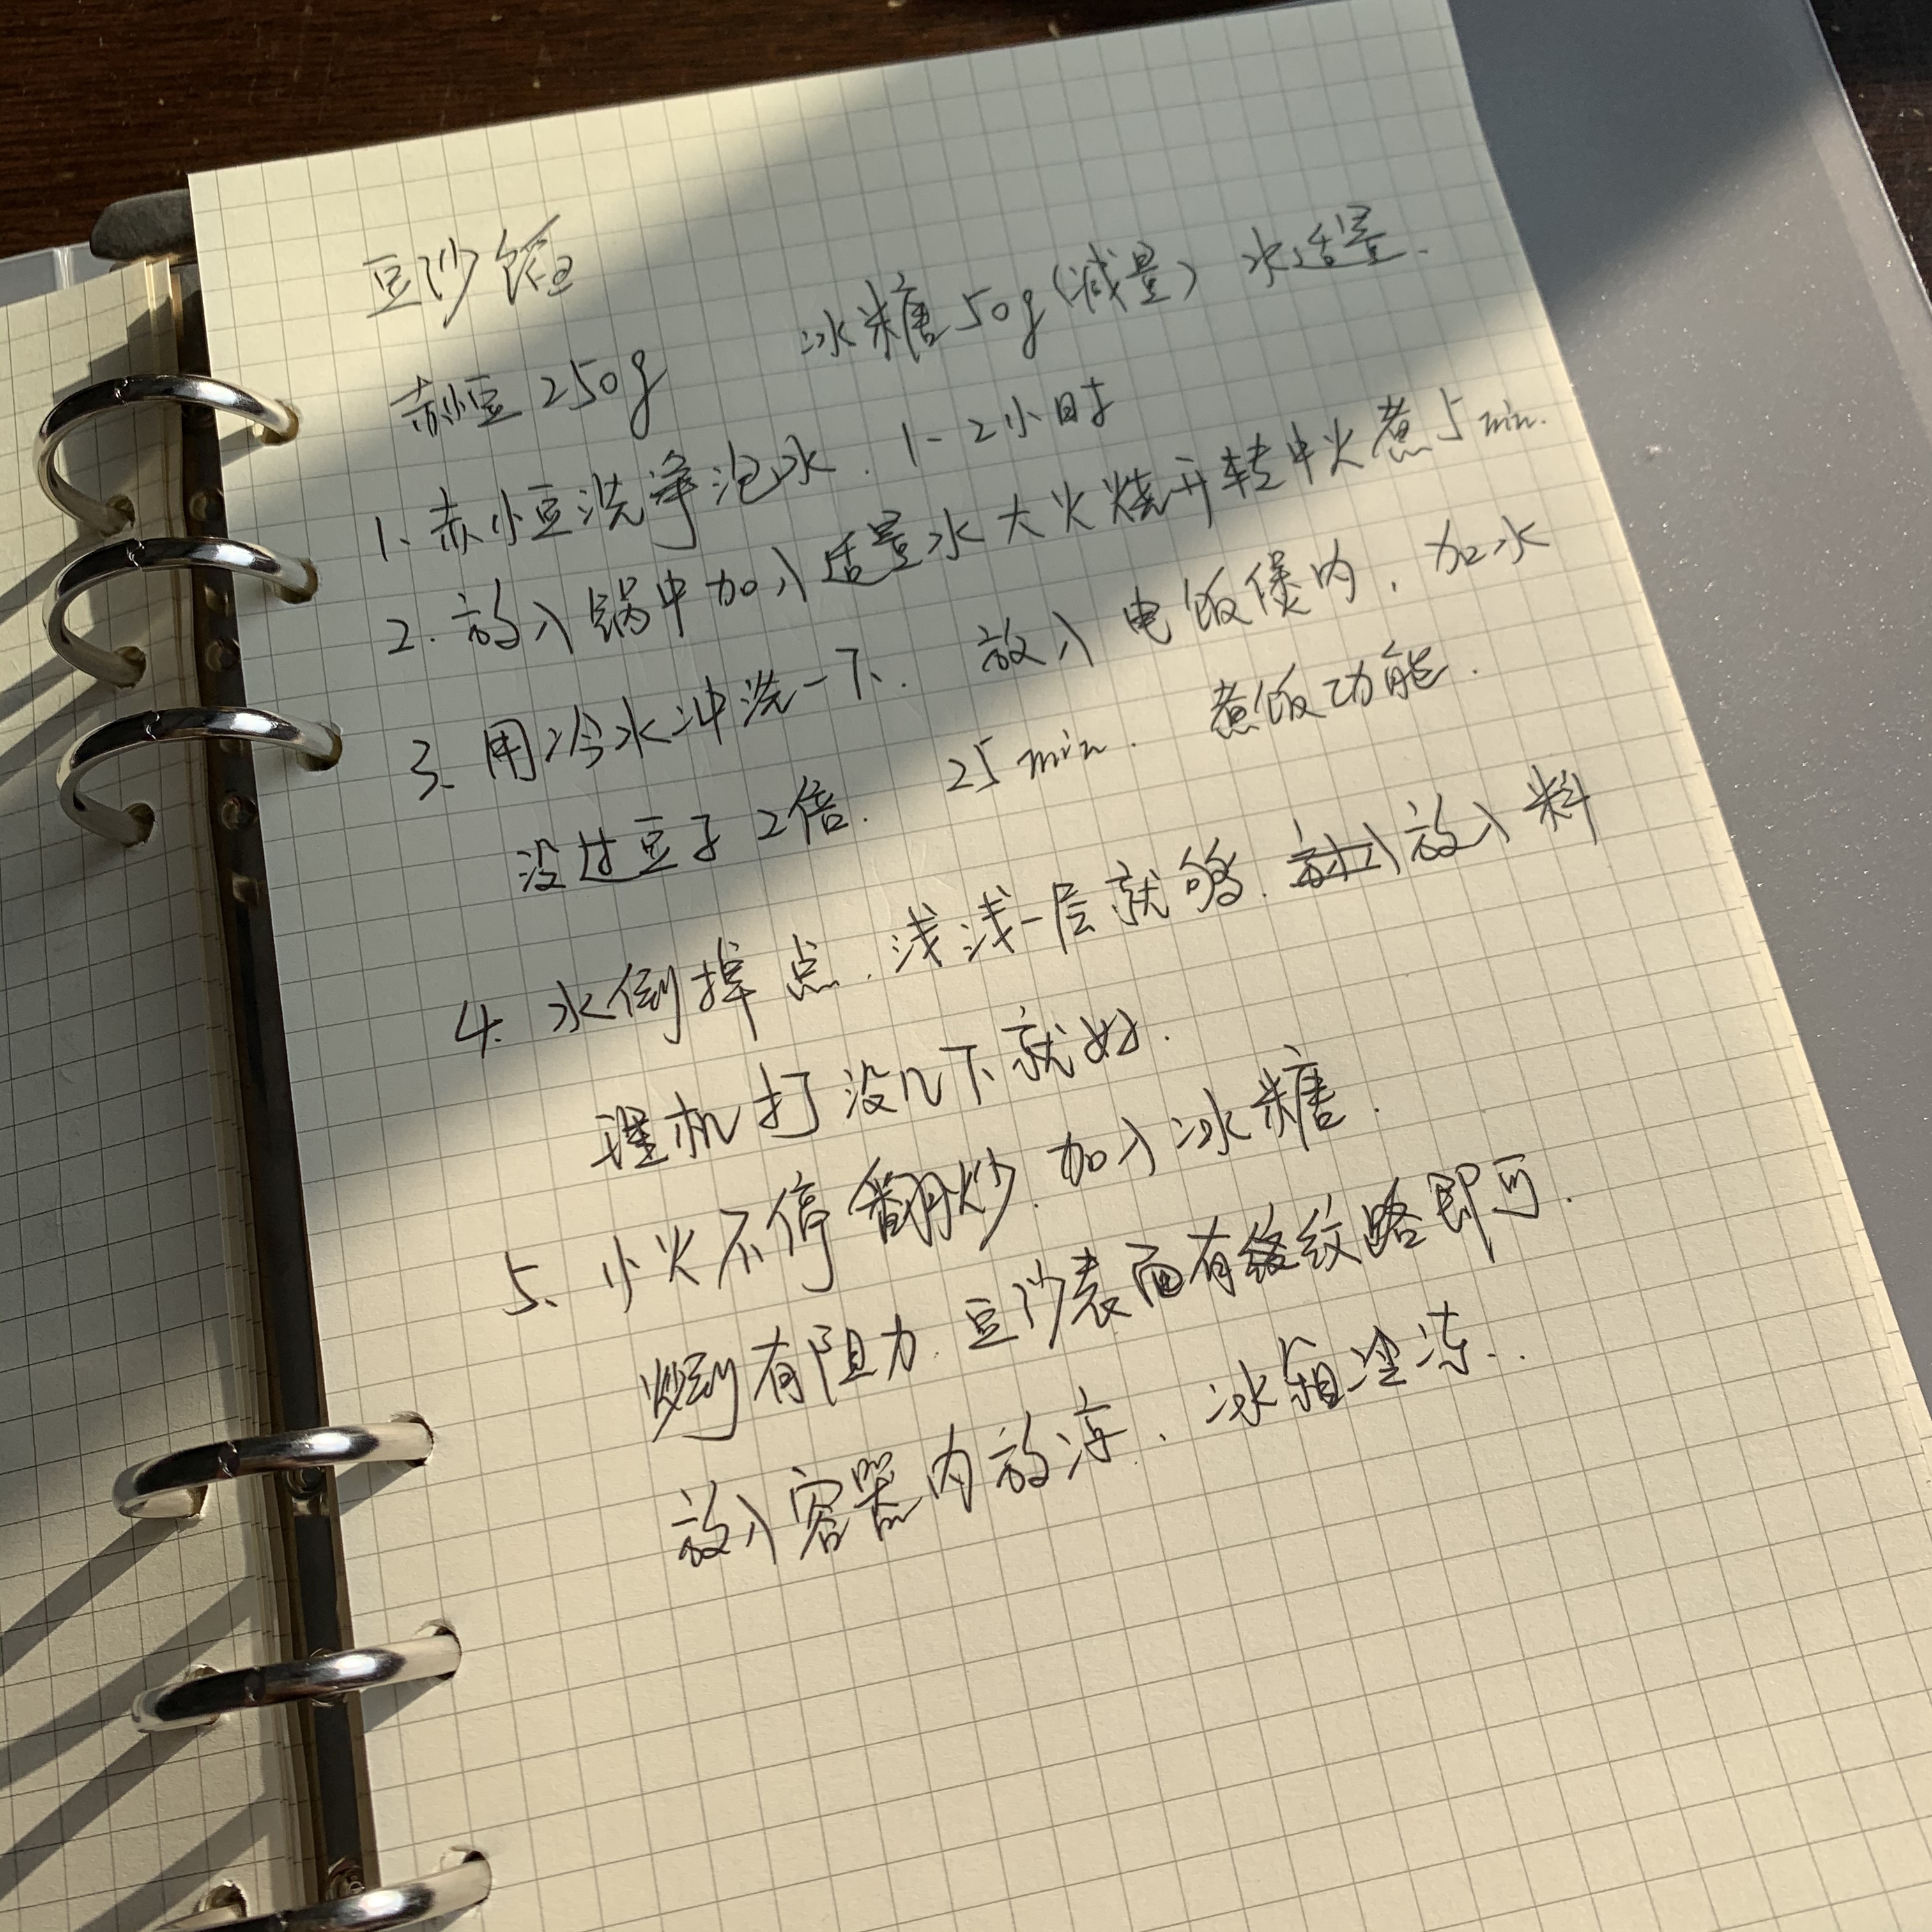 豆沙馅
赤小豆 250g 冰糖 50g (减量) 水适量.
1、赤小豆洗净泡水. 1-2小时
2. 放入锅中加入适量水大火烧开转中火煮5min.
3、用冷水冲洗一下. 放入电饭煲内, 加水
没过豆子2倍. 25min. 煮饭功能.
4. 水倒掉点. 浅浅一层就够. 放入料
理机打没几下就好.
5、小火不停翻炒. 加入冰糖.
炒到有阻力. 豆沙表面有纹路即可.
放入容器内放凉、冰箱冷冻.